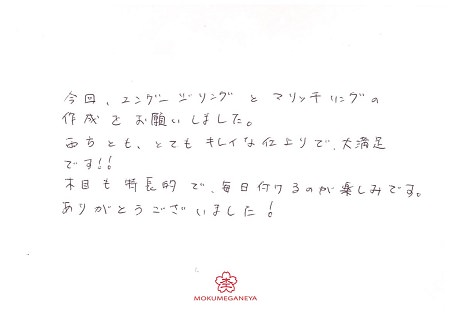 今回、エンゲージリングとマリッヂリングの
作成をお願いしました。
両方とも、とてもキレイな仕上りで、大満足
です!!
木目も特長的で、毎日付けるのが楽しみです。
ありがとうございました!
MOKUMEGANEYA